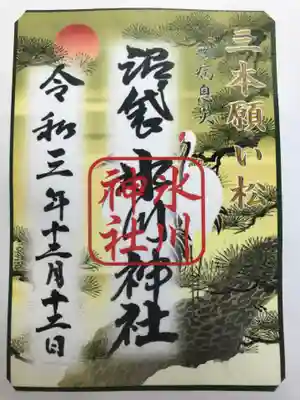 三本願い松
無病息災
沼袋 氷川神社
氷川
神社
令和三年十二月十二日